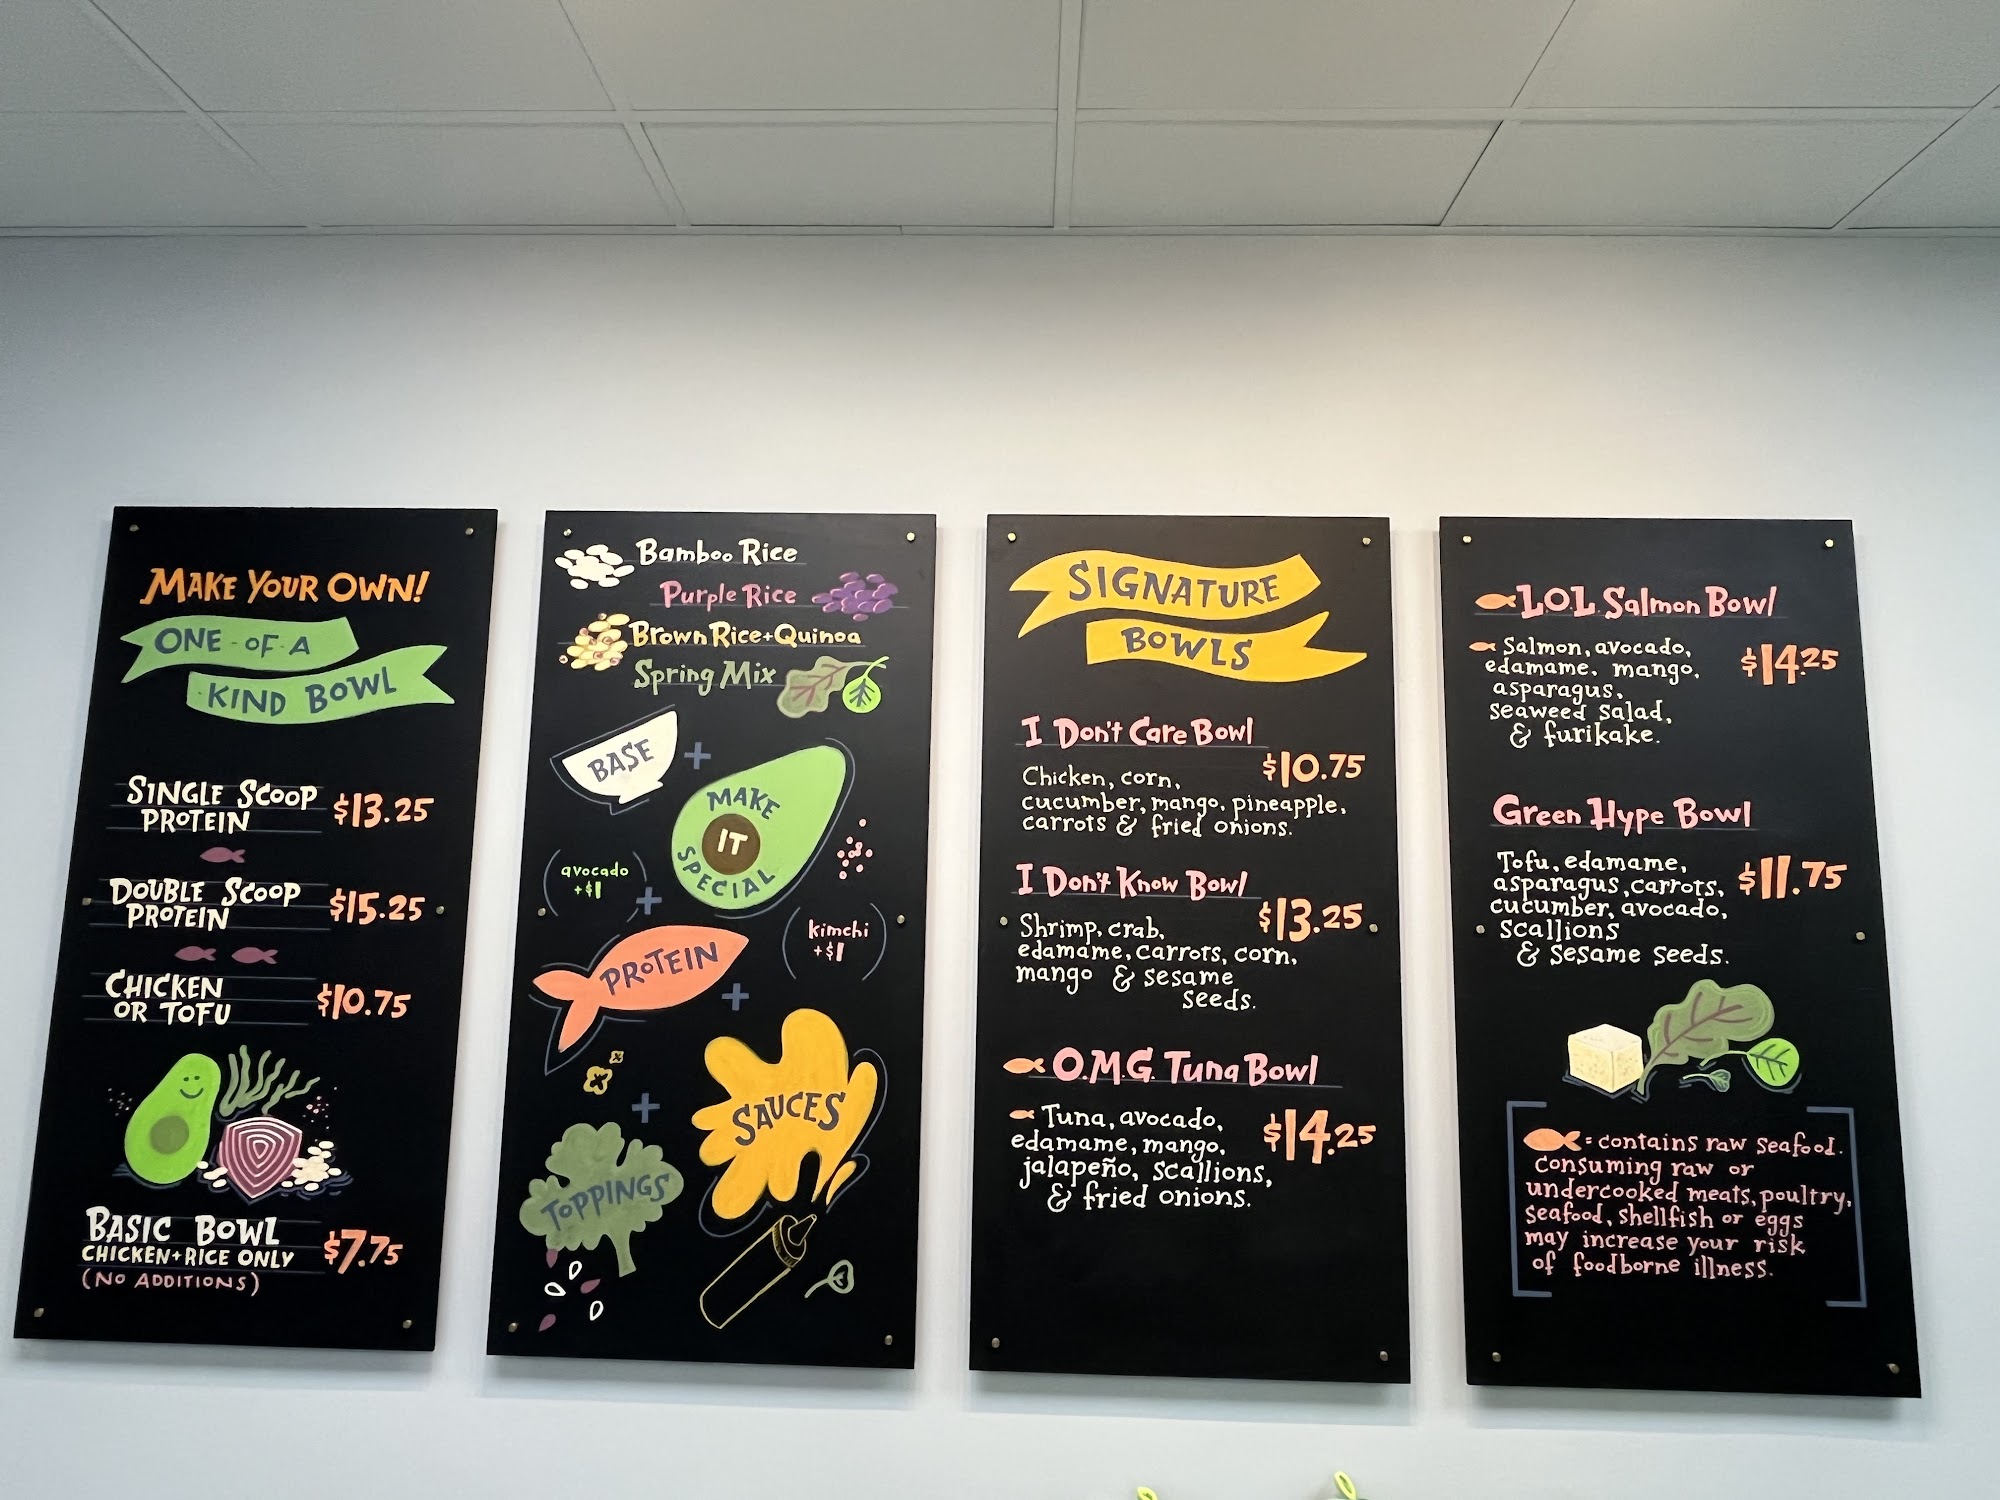 MAKE YOUR OWN!
ONE-OF-A
KIND BOWL
SINGLE SCOOP
PROTEIN
$13.25
DOUBLE SCOOP
PROTEIN
$15.25
CHICKEN
OR TOFU
$10.75
BASIC BOWL
CHICKEN+RICE ONLY
(NO ADDITIONS)
$7.75
Bamboo Rice
Purple Rice
Brown Rice+Quinoa
Spring Mix
BASE
+
MAKE
IT
SPECIAL
avocado
+$1
+
kimchi
+$1
PROTEIN
+
SAUCES
+
TOPPINGS
SIGNATURE
BOWLS
I Don't Care Bowl
$10.75
Chicken, corn,
cucumber, mango, pineapple,
carrots & fried onions.
I Don't Know Bowl
$13.25
Shrimp, crab,
edamame, carrots, corn,
mango & sesame
seeds.
O.M.G. Tuna Bowl
Tuna, avocado,
$14.25
edamame, mango,
jalapeño, scallions,
& fried onions.
L.O.L. Salmon Bowl
Salmon, avocado,
$14.25
edamame, mango,
asparagus,
seaweed salad,
& furikake.
Green Hype Bowl
Tofu, edamame,
$11.75
asparagus, carrots,
cucumber, avocado,
scallions
& sesame seeds.
= contains raw seafood.
Consuming raw or
undercooked meats, poultry,
seafood, shellfish or eggs
may increase your risk
of foodborne illness.